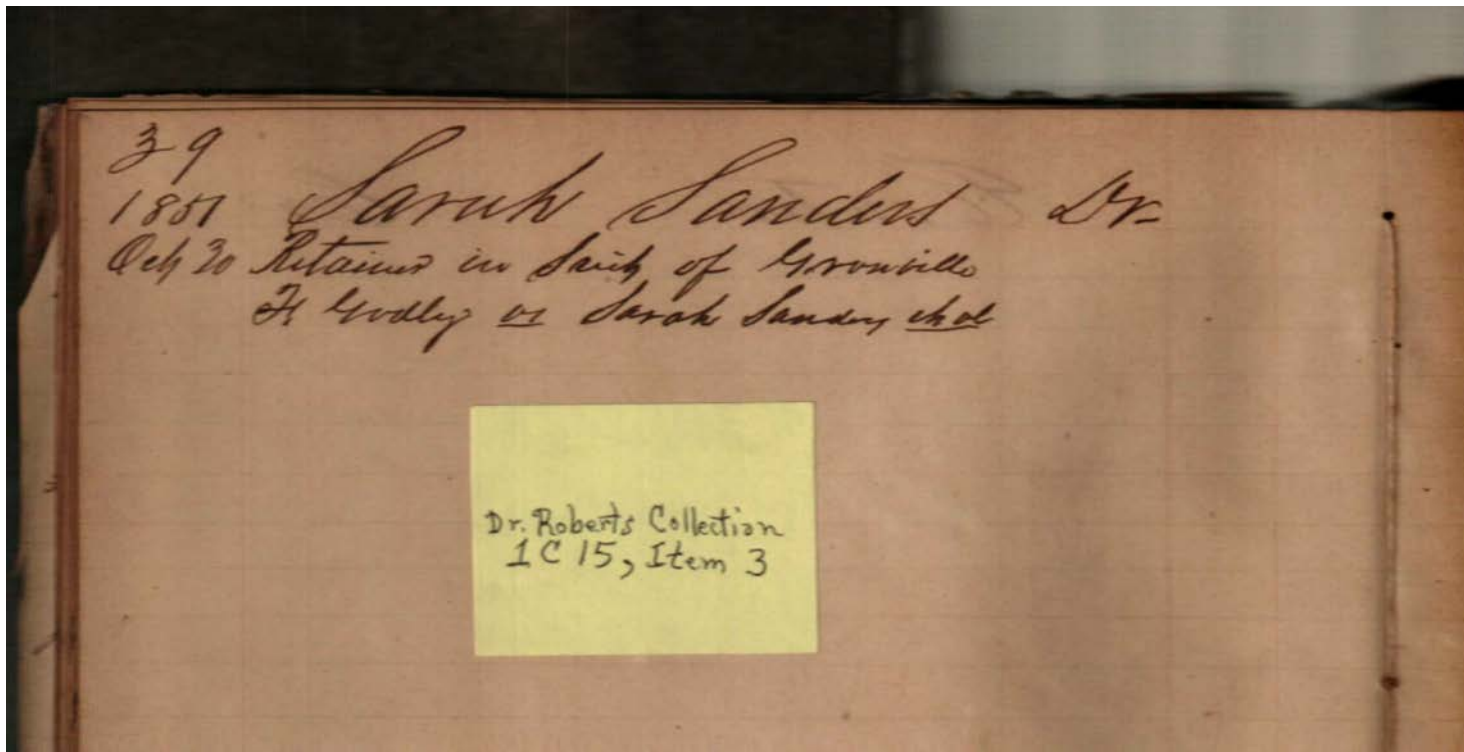 39
1851 Sarah Sanders Dr
Oct 30 Retainer in Suit of Granville
H Godley vs Sarah Sanders et al
Dr. Roberts Collection
1 C 15, Item 3